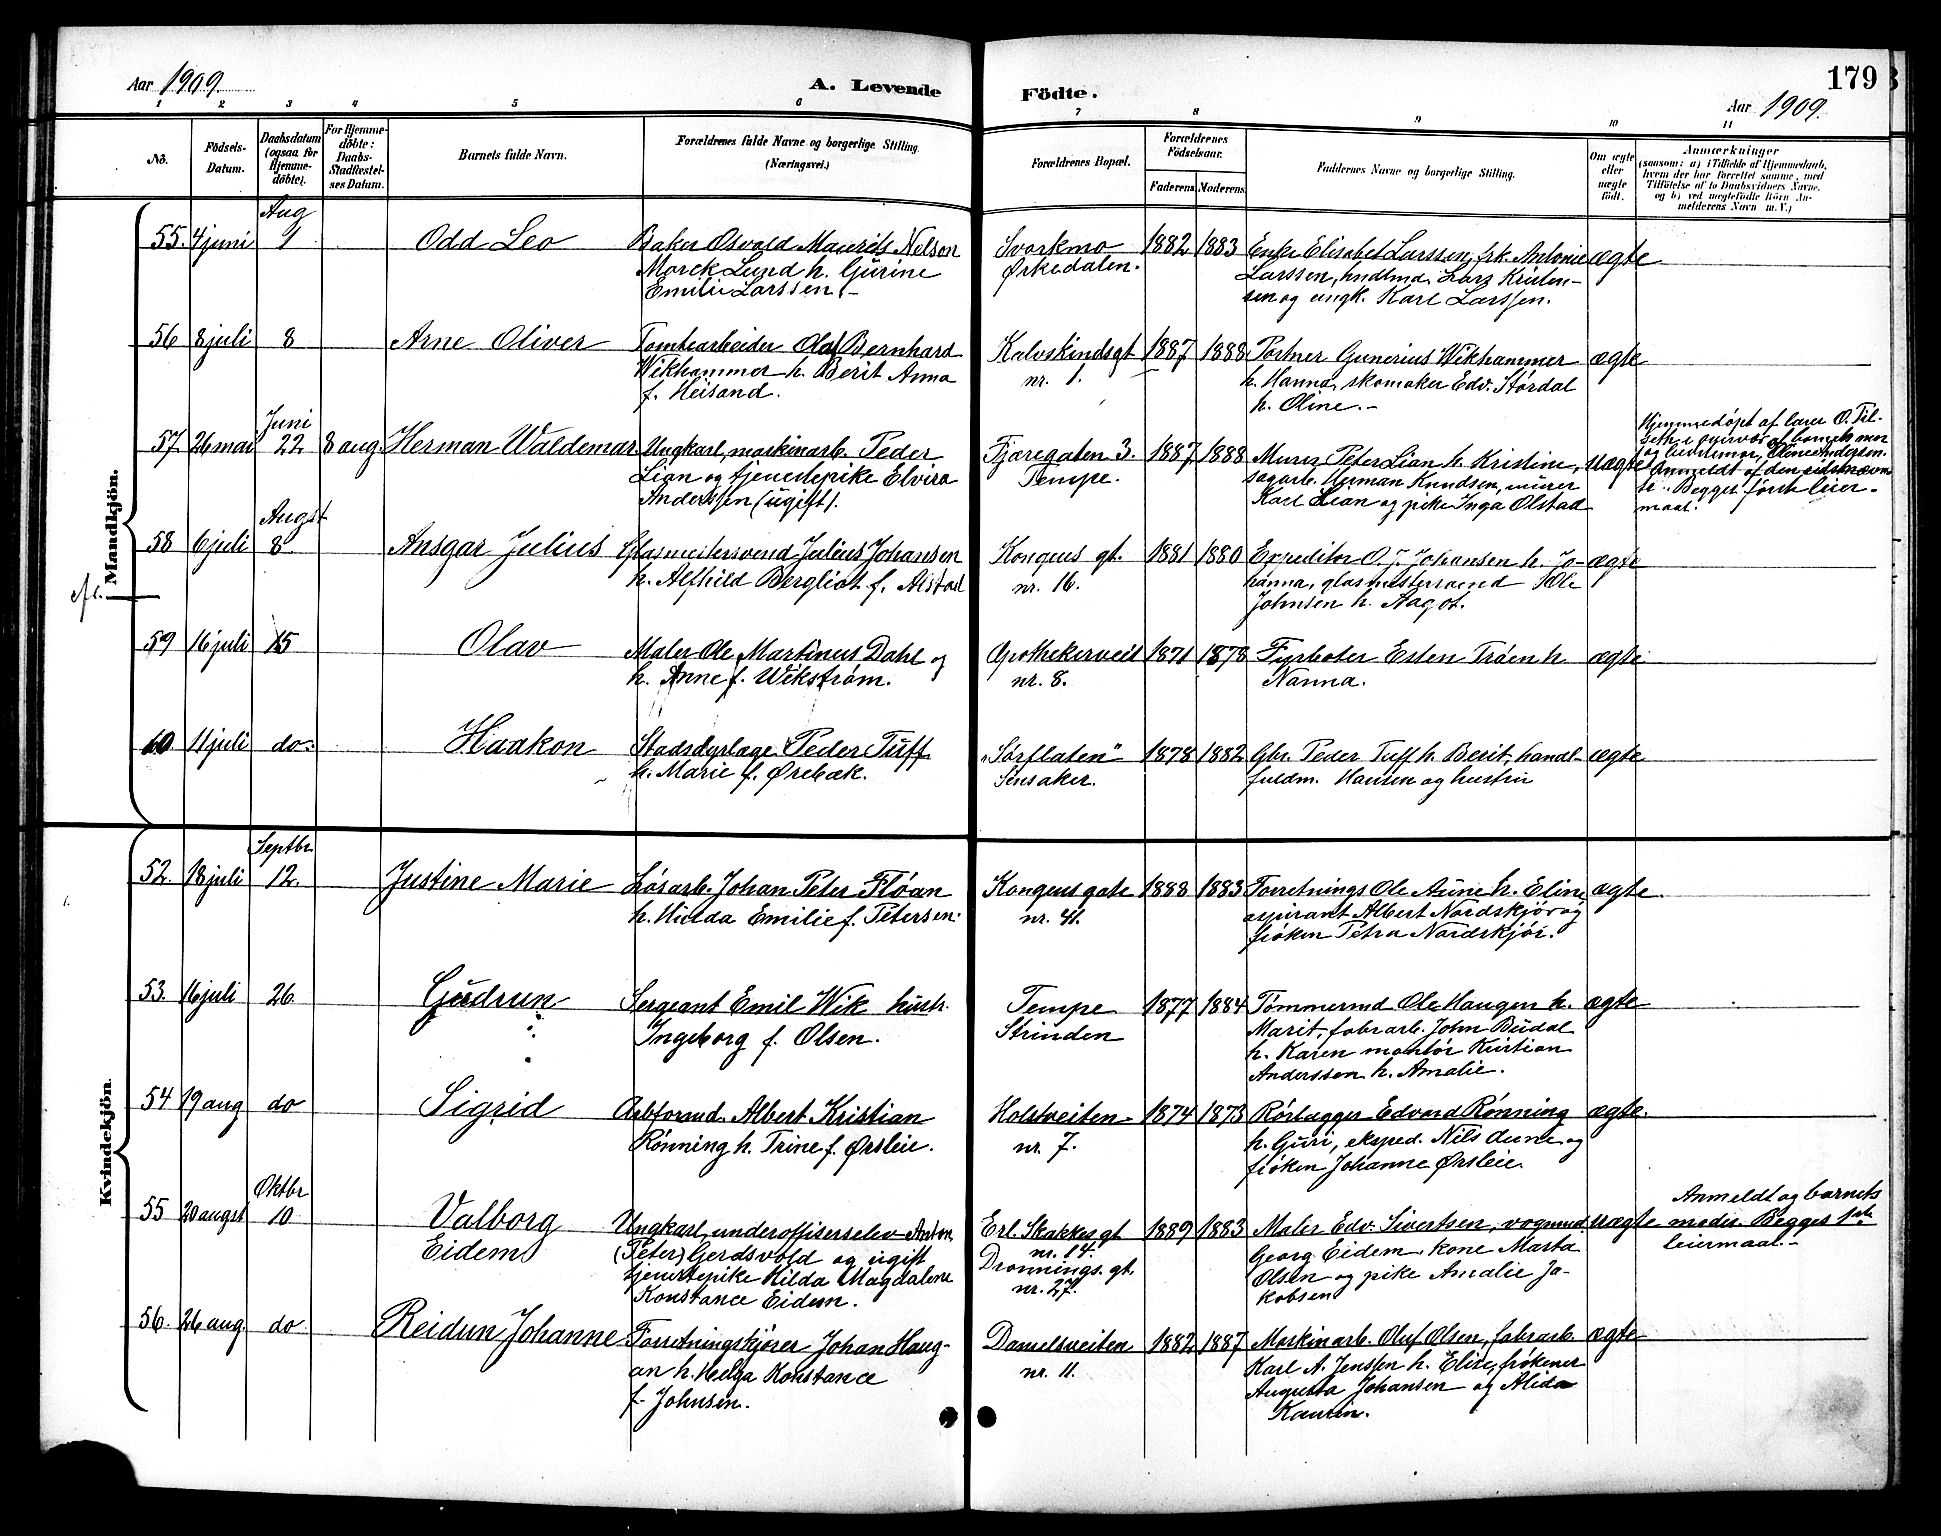 Aar 1909.
A. Levende
Födte.
179
Aar 1909.
1 2 3 4 5 6 7 8 9 10 11
No.
Födsels-
Datum.
Daabsdatum
(ogsaa for
Hjemme-
döbte).
For Hjemme-
döbte:
Daabs-
Stadfæstel-
ses Datum.
Barnets fulde Navn.
Forældrenes fulde Navne og borgerlige Stilling.
(Næringsvei.)
Forældrenes Bopæl.
Forældrenes
Födselsaar.
Faderens. Moderens.
Faddernes Navne og borgerlige Stilling.
Om ægte
eller
uægte
födt.
Anmærkninger
(saasom: a) i Tilfælde af Hjemmedaab,
hvem der har forrettet samme, med
Tilföielse af to Daabsvidners Navne,
og b) ved uægtefödte Börn An-
melderens Navn m. V.)
Mandkjön.
Aug
55. 4 juni 1 Odd Leo
Baker Osvald Maurits Nelson
Morck Lund h. Gurine
Emilie Larssen.-
Svorkmo
Ørkedalen.
1882 1883
Enke Elisabet Larssen, frk. Antonie
Larssen, hndlmd. Lars Kristen-
sen og ungk. Karl Larssen.
ægte
56 8 juli 8 Arne Oliver
Tomtearbeider Olaf Bernhard
Wikhammer h. Berit Anna
f. Heisand.
Kalvskindsgt
nr. 1.
1887 1888
Portner Gunerius Wikhammer
h. Hanna, skomaker Edv. Stördal
h. Oline.-
ægte
Juni
57. 26 mai 22 8 aug. Herman Waldemar
Ungkarl, maskinarb. Peder
Lian og tjenestepike Elvira
Anderssen (ugift).
Fjæregaten 3.
Tempe.
1887 1888
Murer Peter Lian h. Kristine,
sagarb. Herman Knudsen, murer
Karl Lian og pike Inga Olstad
uægte
Hjemmedøpt af lærer O. Til-
seth i overvær af barnets mor
og Andersen.
Anmeldt af den sidstnævn-
te. Begges første leier-
maal.
Augst
58 6 juli 8 Ansgar Julius
Glasmestersvend Julius Johansen
h. Alfhild Bergliot f. Alstad
Kongens gt.
nr. 16.
1881 1880
Expeditør O. J. Johansen h. Jo-
hanna, glasmestersvend Ole
Johnsen h. Aagot.
ægte
59 16 juli 15 Olav
Maler Ole Martinus Dahl og
h. Anne f. Wikstrøm.
Apothekerveit
nr. 8.
1871 1878
Fyrbøter Esten Trøen h.
Nanna.
ægte
60 11 juli do. Haakon
Stadsdyrlæge Peder Tuff
h. Marie f. Ørebæk.
"Sørflaten"
Sensaker.
1878 1882
Gbr. Peder Tuff h. Berit, handl-
fuldm. Hansen og hustru
ægte
Kvindekjön.
Septbr
52. 18 juli 12. Justine Marie
Løsarb. Johan Peter Fløan
h. Hilda Emilie f. Petersen.
Kongens gate
nr. 41.
1888 1883
Forretnings Ole Aune h. Eline
aspirant Albert Nordskjør og
frøken Petra Nordskjør.
ægte.
53. 16 juli 26 Gudrun
Sergeant Emil Wik hustr.
Ingeborg f. Olsen.
Tempe
Strinden
1877 1884
Tømmermd Ole Haugen h.
Marit, fabrarb. John Budal
h. Karen montør Kristian
Anderssen h. Amalie.
ægte
54 19 aug do Sigrid
Albert Kristian
Rønning h. Trine f. Ørsleie.
Holstveiten
nr. 7.
1874 1873
Rørlægger Edvard Rønning
h. Guri, eksped. Nils Aune og
frøken Johanne Ørsleie.
ægte.
Oktbr
55 20 augst 10 Valborg
Eidem
Ungkarl, underoffiserselev Anton
(Peter) Gerdsvold og ugift
tjenestepike Hilda Magdalene
Konstance Eidem.
Erl. Skakkes gt
nr. 14.
Dronnings. gt.
nr. 27.
1889 1883
Maler Edv. Sivertsen, vognmd.
Georg Eidem, kone Marta
Olsen og pike Amalie Ja-
kobsen
uægte
Anmeldt og barnets
moder. Begges 1ste
leiermaal.-
56. 26 aug. do Reidun Johanne
Forretningskjører Johan Haug-
an h. Helga Konstance
f. Johnsen.
Danielsveiten
nr. 11.
1882 1887
Maskinarb. Oluf Olsen, fabrarb.
Karl A. Jenssen h. Elise, frøkener
Augusta Johansen og Alida
Kaurin.
ægte